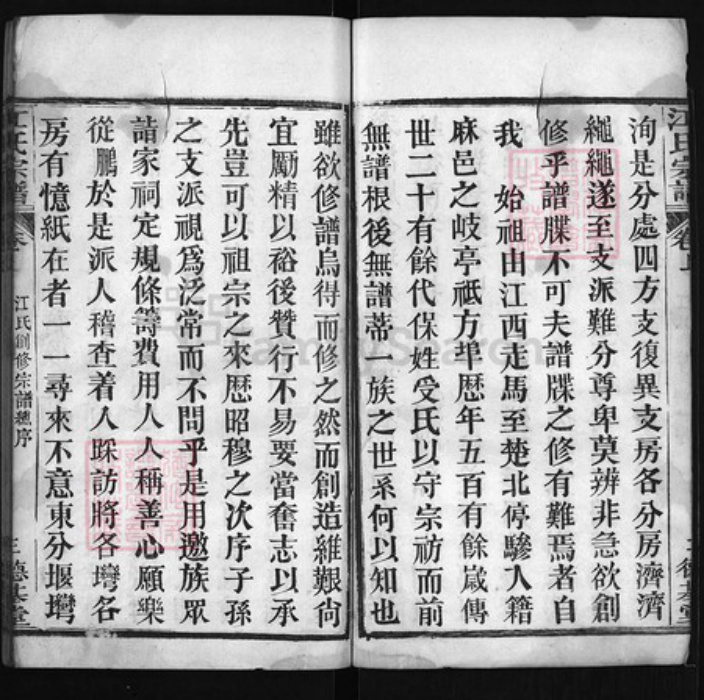 江氏宗譜
卷上
洵是分處四方支復異支房各分房濟濟
繩繩遂至支派難分尊卑莫辨非急欲創
修乎譜牒不可夫譜牒之修有難焉者自
我 始祖由江西走馬至楚北停驂入籍
麻邑之岐亭祗方垾歷年五百有餘歲傳
世二十有餘代保姓受氏以守宗祊而前
無譜根後無譜蒂一族之世系何以知也
雖欲修譜烏得而修之然而創造維艱尙
宜勵精以裕後贊行不易要當奮志以承
先豈可以祖宗之來歷昭穆之次序子孫
之支派視爲泛常而不問乎是用邀族眾
詣家祠定規條籌費用人人稱善心願樂
從鵬於是派人稽查着人踩訪將各塆各
房有憶紙在者一一尋來不意東分堰塆
江氏宗譜
卷上
江氏創修宗譜總序
三
德基堂
FamilySearch